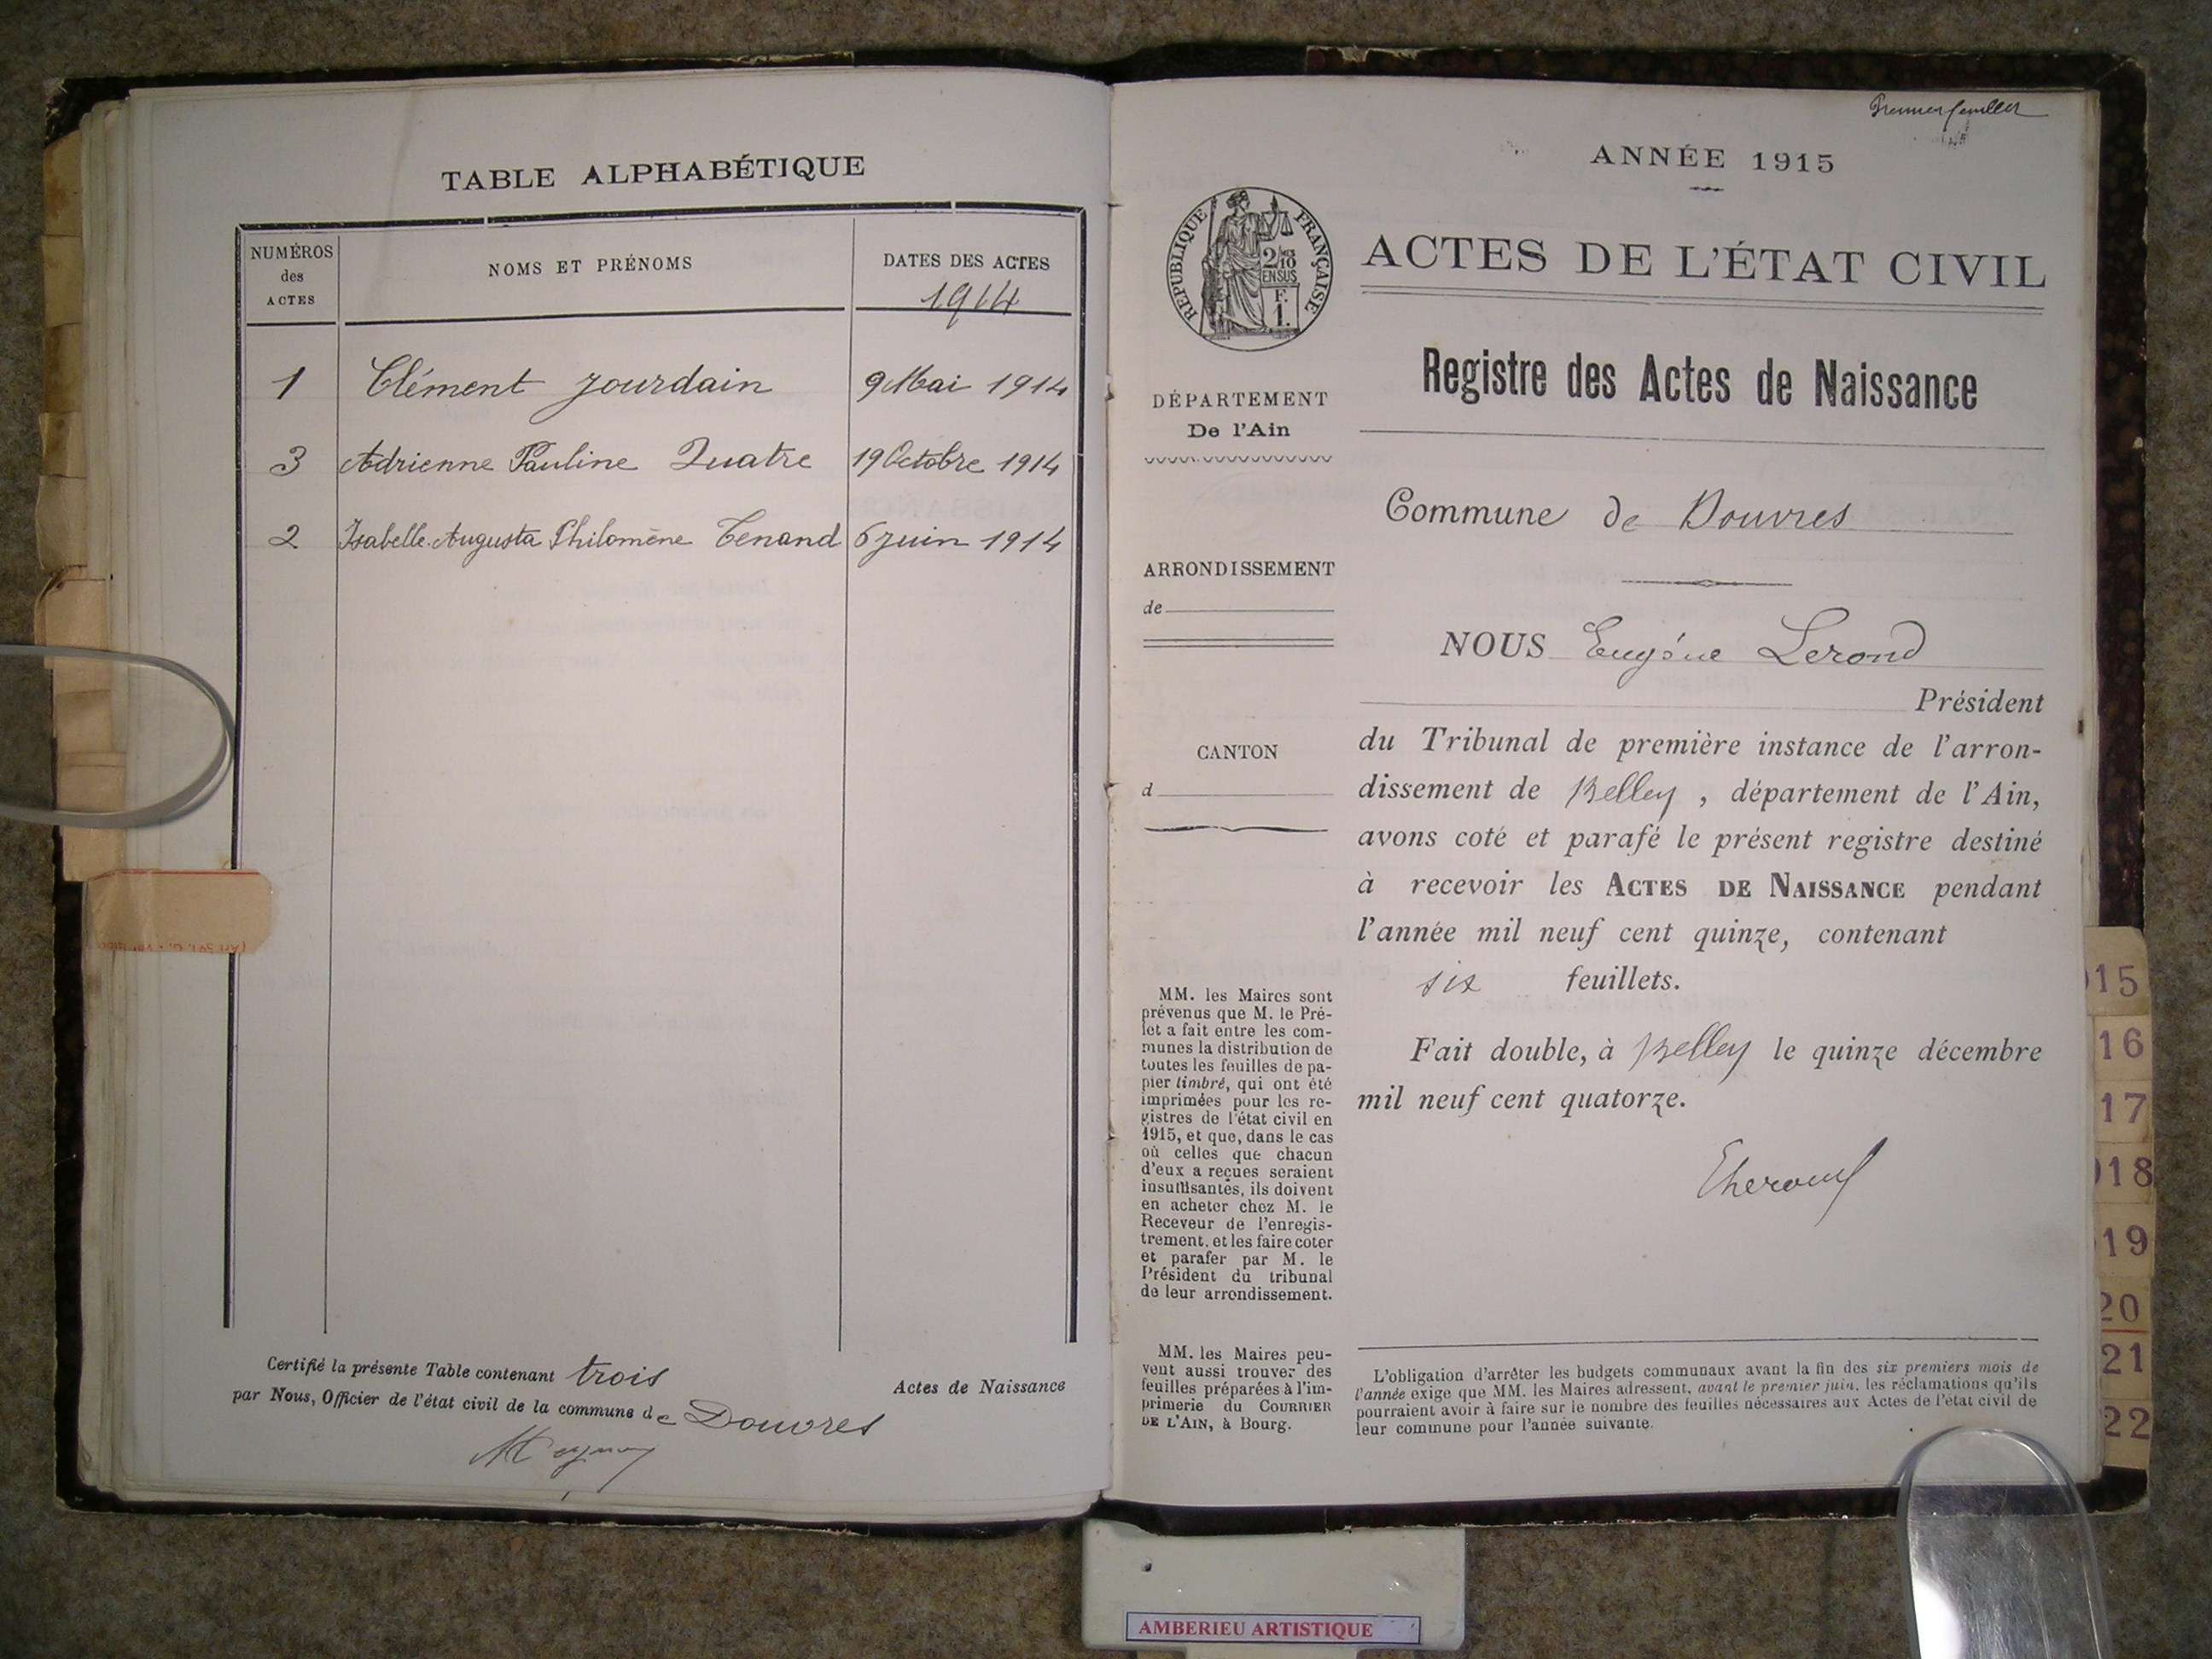 TABLE ALPHABÉTIQUE
NUMÉROS des ACTES
NOMS ET PRÉNOMS
DATES DES ACTES
1914
1 Clément Jourdain 9 Mai 1914
3 Adrienne Pauline Quatre 19 Octobre 1914
2 Isabelle Augusta Philomène Tenand 6 juin 1914
Certifié la présente Table contenant trois Actes de Naissance
par Nous, Officier de l'état civil de la commune de Douvres
Premier feuillet
ANNÉE 1915
RÉPUBLIQUE FRANÇAISE
2/10 EN SUS
F. 1.
ACTES DE L'ÉTAT CIVIL
Registre des Actes de Naissance
DÉPARTEMENT
De l'Ain
Commune de Douvres
ARRONDISSEMENT
de
CANTON
d
NOUS Eugène Lerond
Président
du Tribunal de première instance de l'arron-
dissement de Belley, département de l'Ain,
avons coté et parafé le présent registre destiné
à recevoir les ACTES DE NAISSANCE pendant
l'année mil neuf cent quinze, contenant
six feuillets.
Fait double, à Belley le quinze décembre
mil neuf cent quatorze.
MM. les Maires sont
prévenus que M. le Pré-
fet a fait entre les com-
munes la distribution de
toutes les feuilles de pa-
pier timbré, qui ont été
imprimées pour les re-
gistres de l'état civil en
1915, et que, dans le cas
où celles que chacun
d'eux a reçues seraient
insuffisantes, ils doivent
en acheter chez M. le
Receveur de l'enregis-
trement, et les faire coter
et parafer par M. le
Président du tribunal
de leur arrondissement.
MM. les Maires peu-
vent aussi trouver des
feuilles préparées à l'im-
primerie du COURRIER
DE L'AIN, à Bourg.
L'obligation d'arrêter les budgets communaux avant la fin des six premiers mois de
l'année exige que MM. les Maires adressent, avant le premier juin, les réclamations qu'ils
pourraient avoir à faire sur le nombre des feuilles nécessaires aux Actes de l'état civil de
leur commune pour l'année suivante.
15
16
17
18
19
20
21
22
AMBERIEU ARTISTIQUE